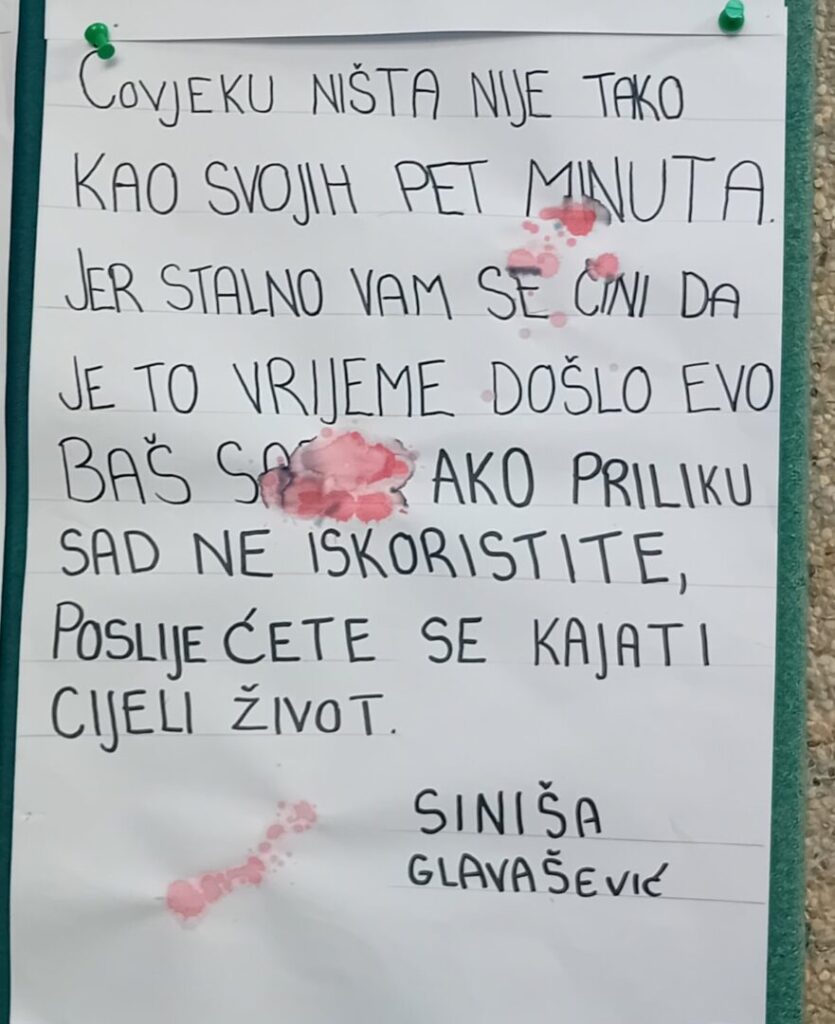 ČOVJEKU NIŠTA NIJE TAKO
KAO SVOJIH PET MINUTA.
JER STALNO VAM SE ČINI DA
JE TO VRIJEME DOŠLO EVO
BAŠ AKO PRILIKU
SAD NE ISKORISTITE,
POSLIJE ĆETE SE KAJATI
CIJELI ŽIVOT.
SINIŠA
GLAVAŠEVIĆ